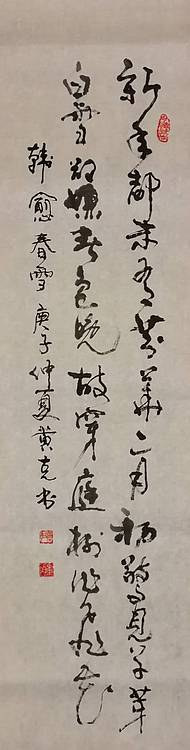 新年都未有芳华二月初惊见草芽
白雪却嫌春色晚故穿庭树作飞花
韩愈春雪庚子仲夏黄克书